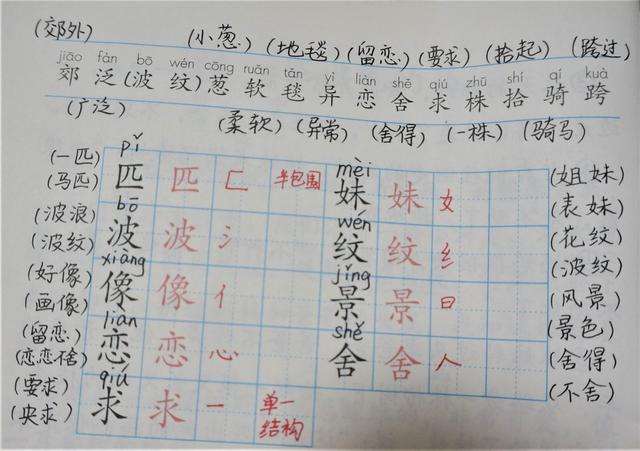 (郊外) (小葱) (地毯) (留恋) (要求) (拾起) (跨过)
jiāo fàn bō wén cōng ruǎn tǎn yì liàn shě qiú zhū shí qí kuà
郊 泛 (波 纹) 葱 软 毯 异 恋 舍 求 株 拾 骑 跨
(广泛) (柔软) (异常) (舍得) (一株) (骑马)
pǐ mèi
(一匹) (马匹) 匹 匹 匚 半包围 妹 妹 女 (姐妹) (表妹)
bō wén
(波浪) (波纹) 波 波 氵 纹 纹 纟 (花纹) (波纹)
xiàng jǐng
(好像) (画像) 像 像 亻 景 景 日 (风景) (景色)
liàn shě
(留恋) (恋恋不舍) 恋 恋 心 舍 舍 人 (舍得) (不舍)
qiú
(要求) (央求) 求 求 一 单一结构